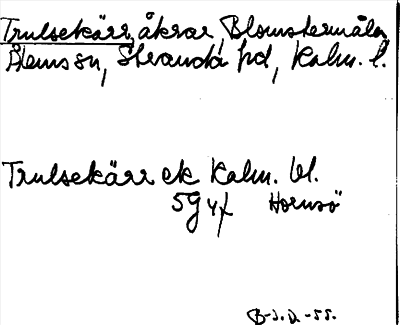 Trulsekärr, åkrar, Blomstermåla,
Ålems sn, Stranda hd, Kalm. l.
Trulsekärr ek Kalm. bl.
5g yx Hornsö